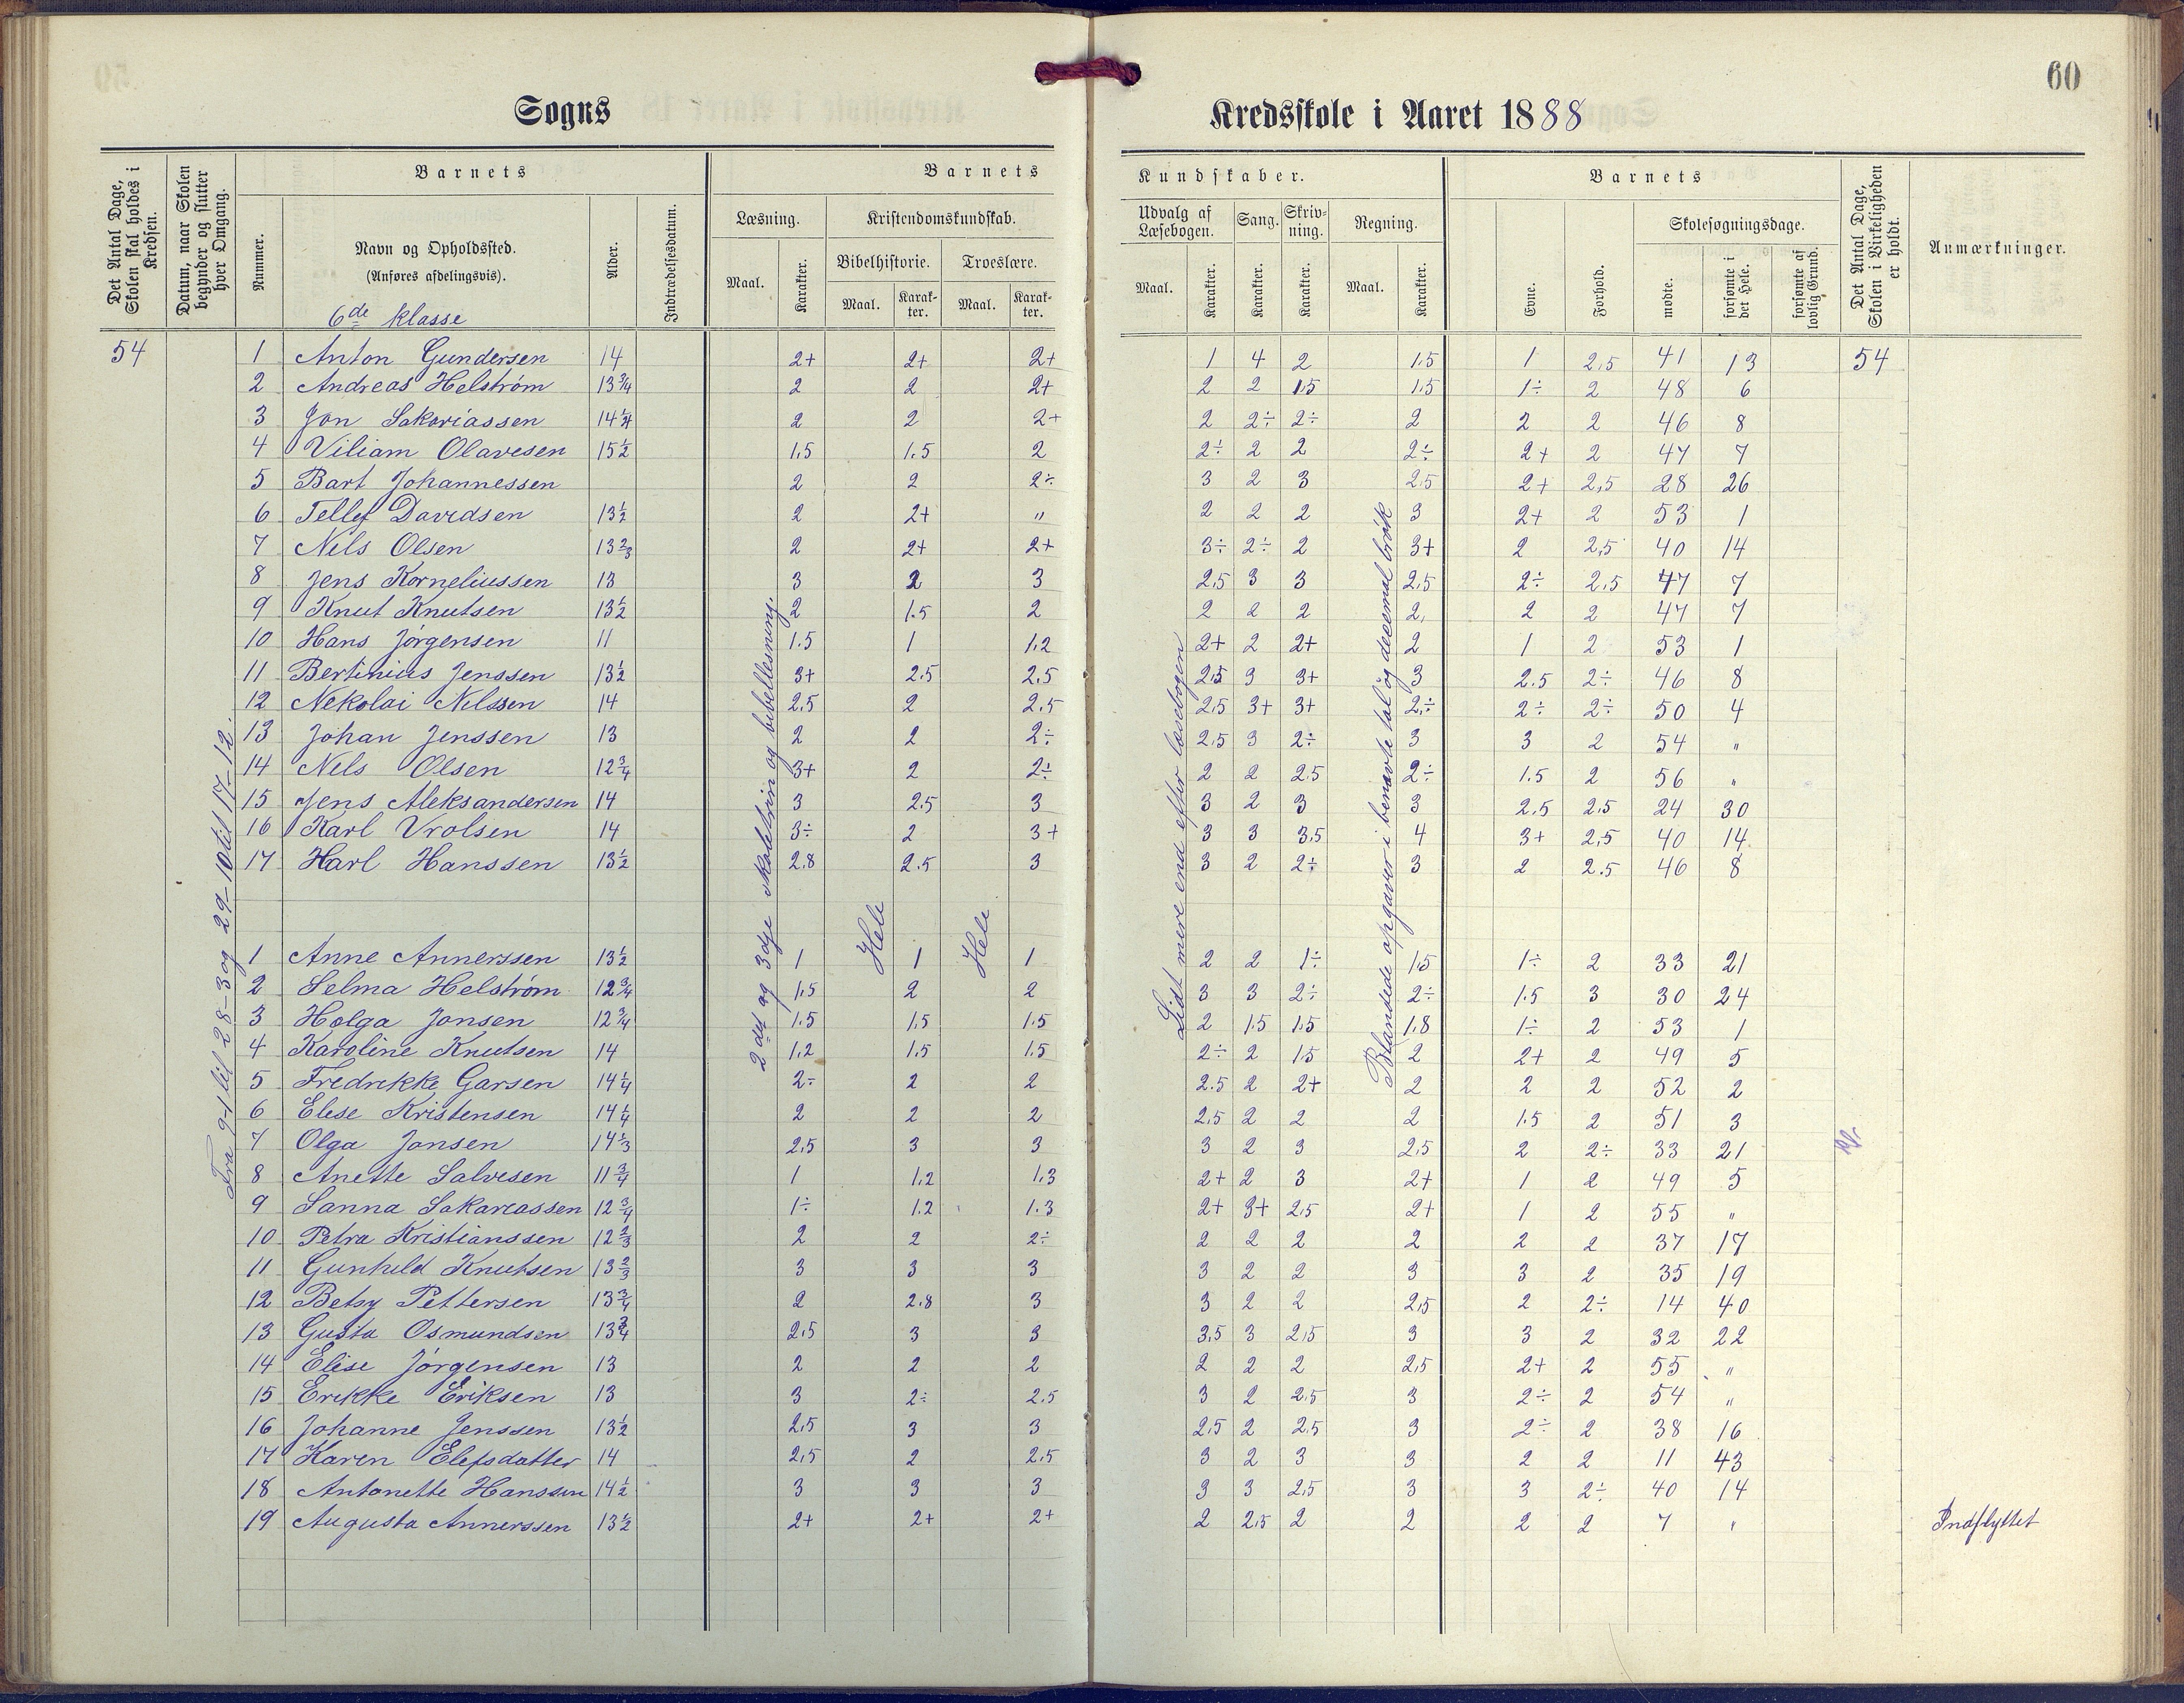 60
Sogns
Kredsskole i Aaret 1888
Det Antal Dage, Skolen skal holdes i Kredsen.
Datum, naar Skolen begynder og slutter hver Omgang.
Barnets
Nummer.
Navn og Opholdssted.
(Anføres afdelingsvis).
6de klasse
Alder.
Indtrædelsesdatum.
Barnets
Læsning.
Maal.
Karakter.
Kristendomskundskab.
Bibelhistorie.
Maal.
Karakter.
Troeslære.
Maal.
Karakter.
Kundskaber.
Udvalg af Læsebogen.
Maal.
Karakter.
Sang.
Karakter.
Skrivning.
Karakter.
Regning.
Maal.
Karakter.
Barnets
Evne.
Forhold.
Skolesøgningsdage.
mødte.
forsømte i det Hele.
forsømte af lovlig Grund.
Det Antal Dage, Skolen i Virkeligheden er holdt.
Anmærkninger.
54 1 Anton Gundersen 14 2+ 2+ 2+ 1 4 2 1.5 1 2,5 41 13 54
2 Andreas Helstrøm 13 3/4 2 2 2+ 2 2 1.5 1.5 1÷ 2 48 6
3 Jon Sakariassen 14 1/4 2 2 2+ 2 2÷ 2÷ 2 2 2 46 8
4 Viliam Olavesen 15 1/2 1,5 1.5 2 2÷ 2 2 2÷ 2+ 2 47 7
5 Bart Johannessen 2 2 2÷ 3 2 3 2.5 2+ 2,5 28 26
6 Tellef Davidsen 13 1/2 2 2+ " 2 2 2 3 2+ 2 53 1
7 Nils Olsen 13 2/3 2 2+ 2+ 3÷ 2÷ 2 3+ 2 2,5 40 14
8 Jens Korneliussen 13 3 2 3 2.5 3 3 2.5 2÷ 2.5 47 7
9 Knut Knutsen 13 1/2 2 1.5 2 2 2 2 2, 2 2 47 7
10 Hans Jørgensen 11 1.5 1 1.2 2+ 2 2+ 2 1 2 53 1
11 Bertinius Jenssen 13 1/2 3+ 2.5 2.5 2.5 3 3+ 3 2.5 2÷ 46 8
12 Nekolai Nilssen 14 2.5 2 2.5 2.5 3+ 3+ 2÷ 2÷ 2÷ 50 4
13 Johan Jenssen 13 2 2 2÷ 2.5 3 2÷ 3 3 2 54 "
14 Nels Olsen 12 3/4 3+ 2 2÷ 2 2 2.5 2÷ 1.5 2 56 "
15 Jens Aleksandersen 14 3 2.5 3 3 2 3 3 2.5 2.5 24 30
16 Karl Vrolsen 14 3÷ 2 3+ 3 3 3.5 4 3+ 2,5 40 14
17 Harl Hanssen 13 1/2 2.8 2.5 3 3 2 2÷ 3 2 2.5 46 8
1 Anne Annerssen 13 1/2 1 1 1 2 2 1÷ 1.5 1÷ 2 33 21
2 Selma Helstrøm 12 3/4 1,5 2 2 3 3 2÷ 2÷ 1.5 3 30 24
3 Holga Jonsen 12 3/4 1.5 1.5 1.5 2 1.5 1.5 1.8 1÷ 2 53 1
4 Karoline Knutsen 14 1.2 1.5 1.5 2÷ 2 1.5 2 2+ 2 49 5
5 Fredrikke Garsen 14 1/4 2÷ 2 2 2.5 2 2+ 2 2 2 52 2
6 Elese Kristensen 14 1/4 2 2 2 2,5 2 2 2 1.5 2 51 3
7 Olga Jonsen 14 1/3 2,5 3 3 3 2 3 2,5 2 2÷ 33 21
8 Anette Salvesen 11 3/4 1 1,2 1,3 2+ 2 3 2+ 1 2 49 5
9 Sanna Sakariassen 12 3/4 1÷ 1.2 1.3 2+ 3+ 2.5 2+ 1 2 55 "
10 Petra Kristianssen 12 2/3 2 2 2÷ 2 2 2 2 2 2 37 17
11 Gunhild Knutsen 13 2/3 3 3 3 3 2 2 3 3 2 35 19
12 Betsy Pettersen 13 3/4 2 2.8 3 3 2 2 2,5 2 2÷ 14 40
13 Gusta Osmundsen 13 3/4 2,5 3 3 3,5 3 2,5 3 3 2 32 22
14 Elise Jørgensen 13 2 2 2 2 2 2 2,5 2+ 2 55 "
15 Erikke Eriksen 13 3 2÷ 2.5 3 2 2.5 3 2÷ 2 54 "
16 Johanne Jenssen 13 1/2 2,5 3 3 2,5 2 2.5 3 2÷ 2 38 16
17 Karen Elefsdatter 14 2,5 2 2.5 3 2 3 3 2 2 11 43
18 Antonette Hanssen 14 1/2 3 3 3 3 3 2.5 3 3 2÷ 40 14
19 Augusta Annerssen 13 1/2 2+ 2+ 2+ 2 2.5 2 2 2 2 7 " Indflyttet
Fra 9-1 til 28-3 og 29-10 til 17-12.
2det og 3dje skoletrin og bibellesning.
Hele
Hele
Lidt mere end efter læsebogen
Blandede opgaver i benævte tal og decemal brøk